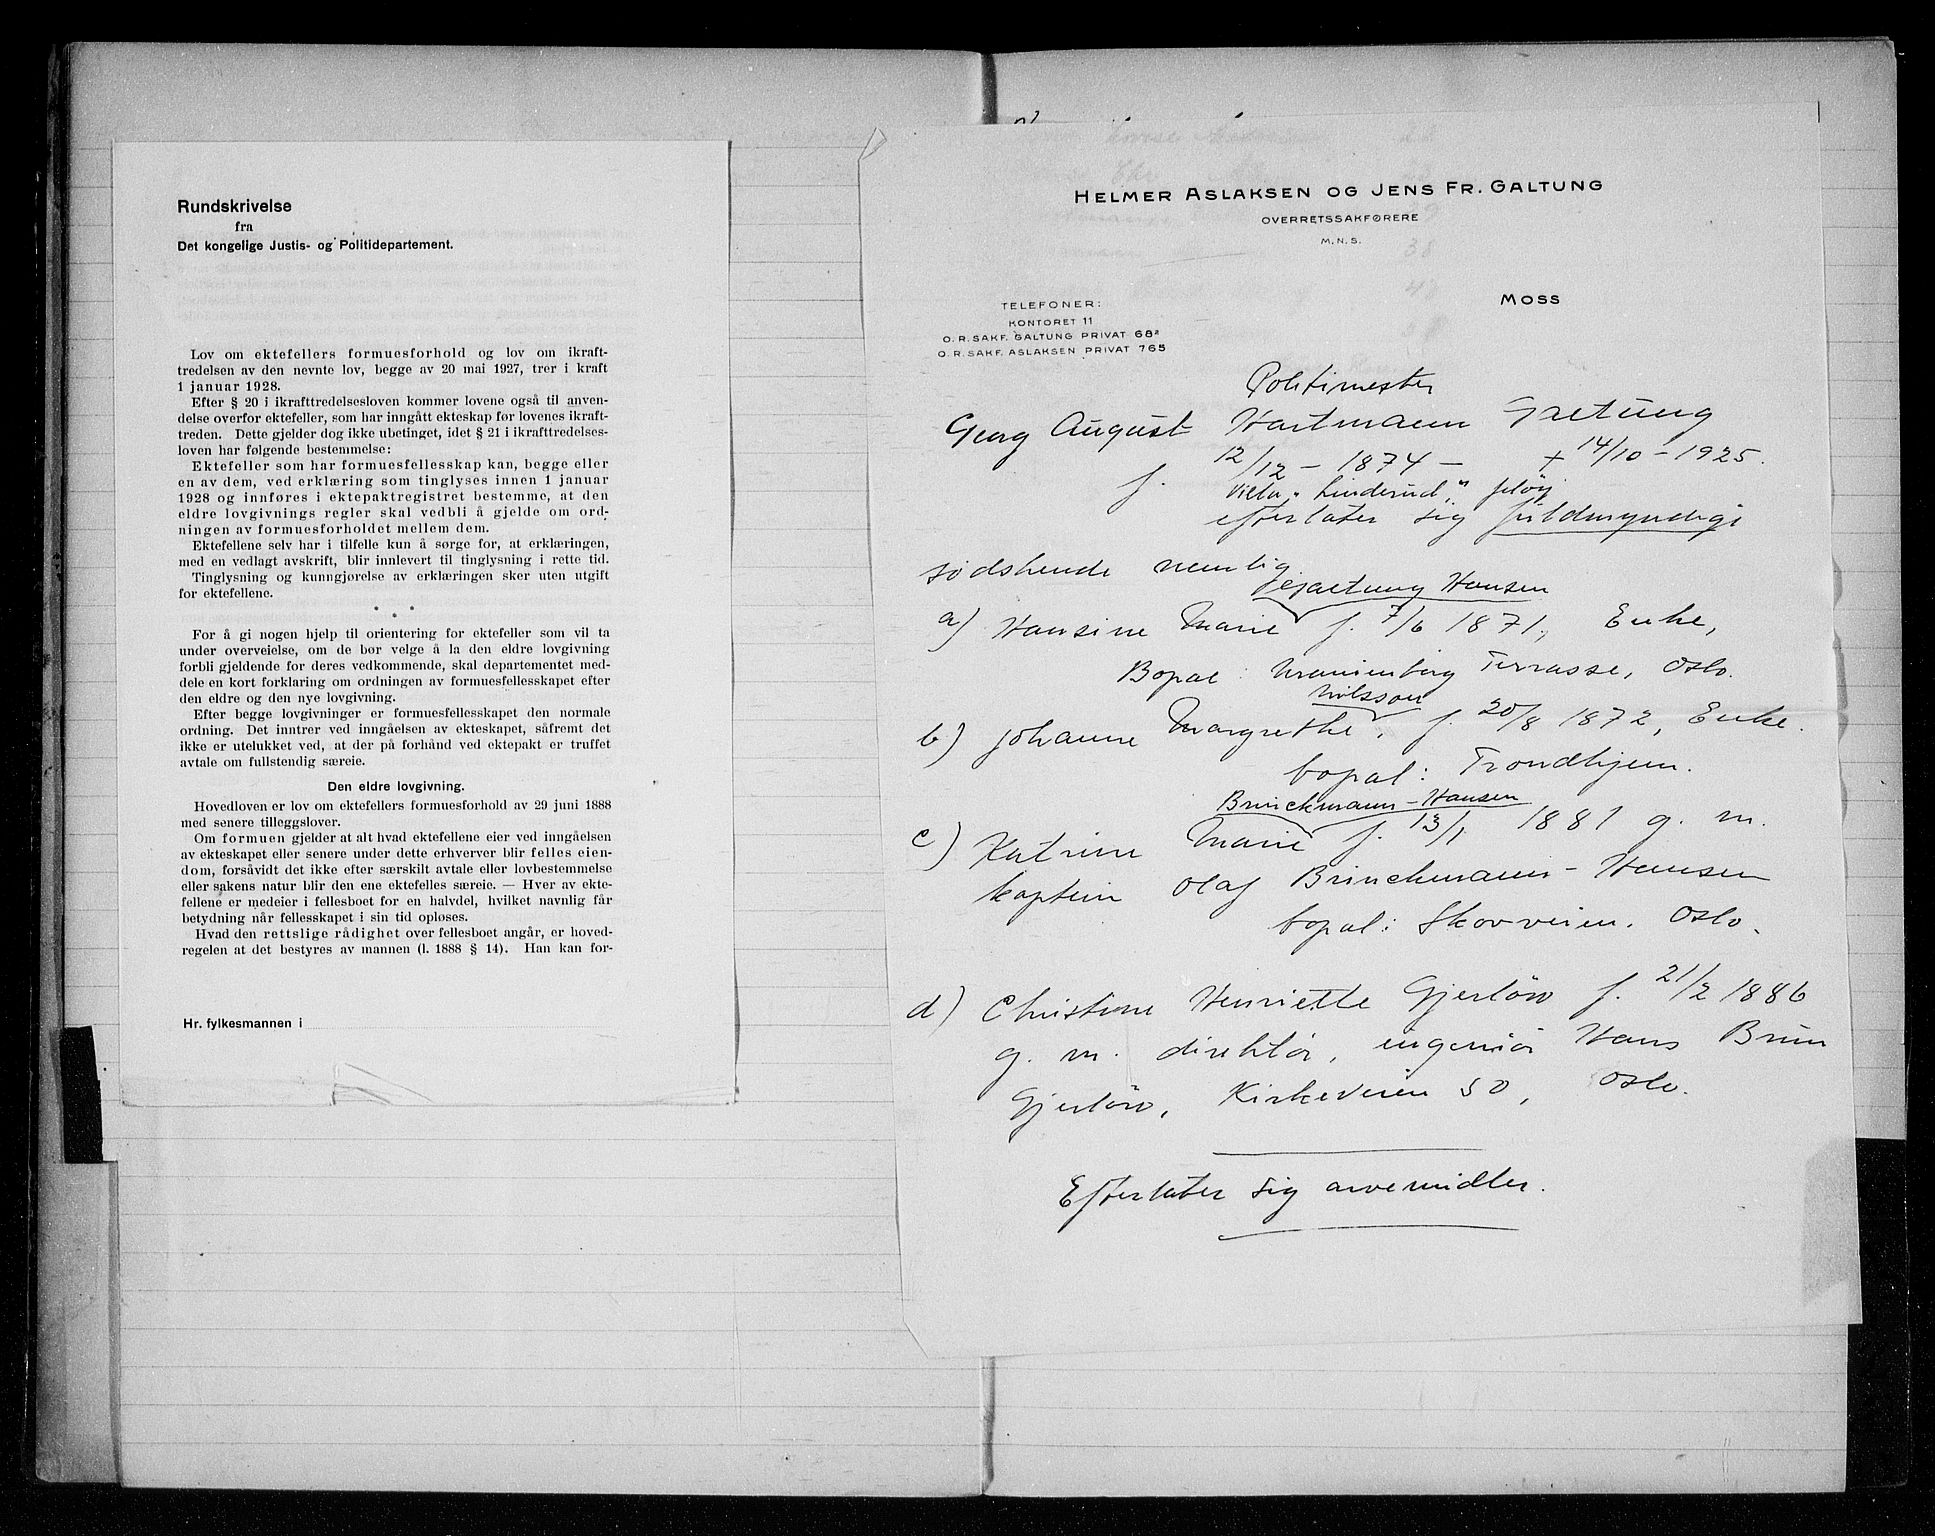 Rundskrivelse
fra
Det kongelige Justis- og Politidepartement.
Lov om ektefellers formuesforhold og lov om ikraft-
tredelsen av den nevnte lov, begge av 20 mai 1927, trer i kraft
1 januar 1928.
Efter § 20 i ikrafttredelsesloven kommer lovene også til anven-
delse overfor ektefeller, som har inngått ekteskap før lovenes ikraft-
treden. Dette gjelder dog ikke ubetinget, idet § 21 i ikrafttredelses-
loven har følgende bestemmelse:
Ektefeller som har formuesfellesskap kan, begge eller
en av dem, ved erklæring som tinglyses innen 1 januar
1928 og innføres i ektepaktregistret bestemme, at den
eldre lovgivnings regler skal vedbli å gjelde om ord-
ningen av formuesforholdet mellem dem.
Ektefellene selv har i tilfelle kun å sørge for, at erklæringen,
med en vedlagt avskrift, blir innlevert til tinglysning i rette tid.
Tinglysning og kunngjørelse av erklæringen sker uten utgift
for ektefellene.
For å gi nogen hjelp til orientering for ektefeller som vil ta
under overveielse, om de bør velge å la den eldre lovgivning
forbli gjeldende for deres vedkommende, skal departementet med-
dele en kort forklaring om ordningen av formuesfellesskapet efter
den eldre og den nye lovgivning.
Efter begge lovgivninger er formuesfellesskapet den normale
ordning. Det inntrer ved inngåelsen av ekteskapet, såfremt det
ikke er utelukket ved, at der på forhånd ved ektepakt er truffet
avtale om fullstendig særeie.
Den eldre lovgivning.
Hovedloven er lov om ektefellers formuesforhold av 29 juni 1888
med senere tilleggslover.
Om formuen gjelder at alt hvad ektefellene eier ved inngåelsen
av ekteskapet eller senere under dette erhverver blir felles eien-
dom, forsåvidt det ikke efter særskilt avtale eller lovbestemmelse
eller sakens natur blir den ene ektefelles særeie. — Hver av ekte-
fellene er medeier i fellesboet for en halvdel, hvilket navnlig får
betydning når fellesskapet i sin tid opløses.
Hvad den rettslige rådighet over fellesboet angår, er hoved-
regelen at det bestyres av mannen (l. 1888 § 14). Han kan for-
Hr. fylkesmannen i
HELMER ASLAKSEN OG JENS FR. GALTUNG
OVERRETSSAKFØRERE
M.N.S.
MOSS
TELEFONER:
KONTORET 11
O.R.SAKF. GALTUNG PRIVAT 68²
O.R.SAKF. ASLAKSEN PRIVAT 765
Politimester
Georg August Hartmann Gjetung
f. 12/12 - 1874 - + 14/10 - 1925.
Villa "Linderud", Jeløy
efterlater sig fuldmyndige
sødskende nemlig
Gjætung Hansen
a) Hansine Marie f. 7/6 1871, Enke,
Bopæl: Uranienborg Terrasse, Oslo.
Nilsson
b) Johanne Margrethe, f. 20/8 1872, Enke.
bopæl: Trondhjem.
Brinckmann-Hansen
c) Katrine Marie f. 13/1 1881 g. m.
kaptein Olaf Brinckmann-Hansen
bopæl: Skovveien. Oslo.
d) Christine Henriette Gjerløw f. 21/2 1886
g. m. direktør, ingeniør Hans Brun
Gjerløw, Kirkeveien 50, Oslo.
Efterlater sig arvemidler.